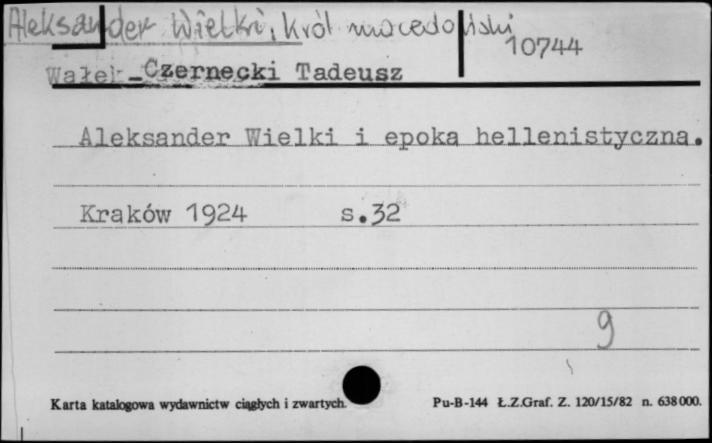 Aleksander Wielki, król macedoński
10744
Wałek-Czernecki Tadeusz
Aleksander Wielki i epoka hellenistyczna.
Kraków 1924 s.32
9
Karta katalogowa wydawnictw ciągłych i zwartych.
Pu-B-144 Ł.Z.Graf. Z. 120/15/82 n. 638000.